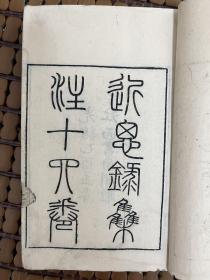 近思錄集
注十四卷